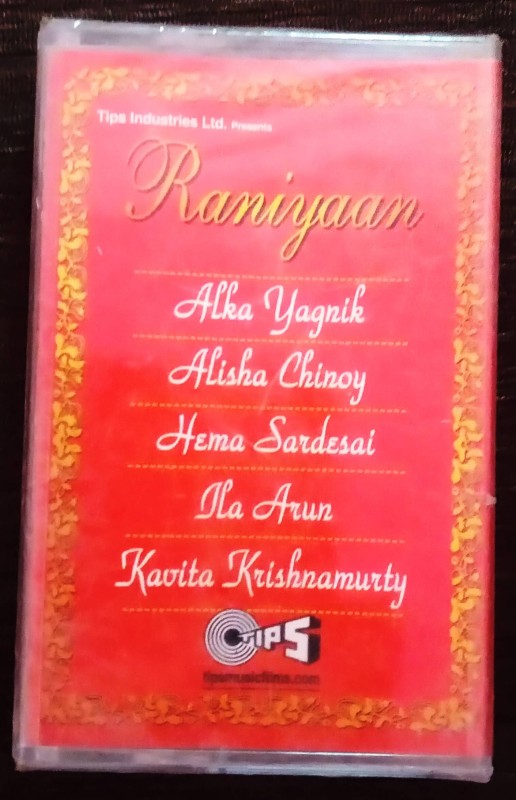 Tips Industries Ltd. Presents
Raniyaan
Alka Yagnik
Alisha Chinoy
Hema Sardesai
Ila Arun
Kavita Krishnamurty
TIPS
tipsmusicfilms.com